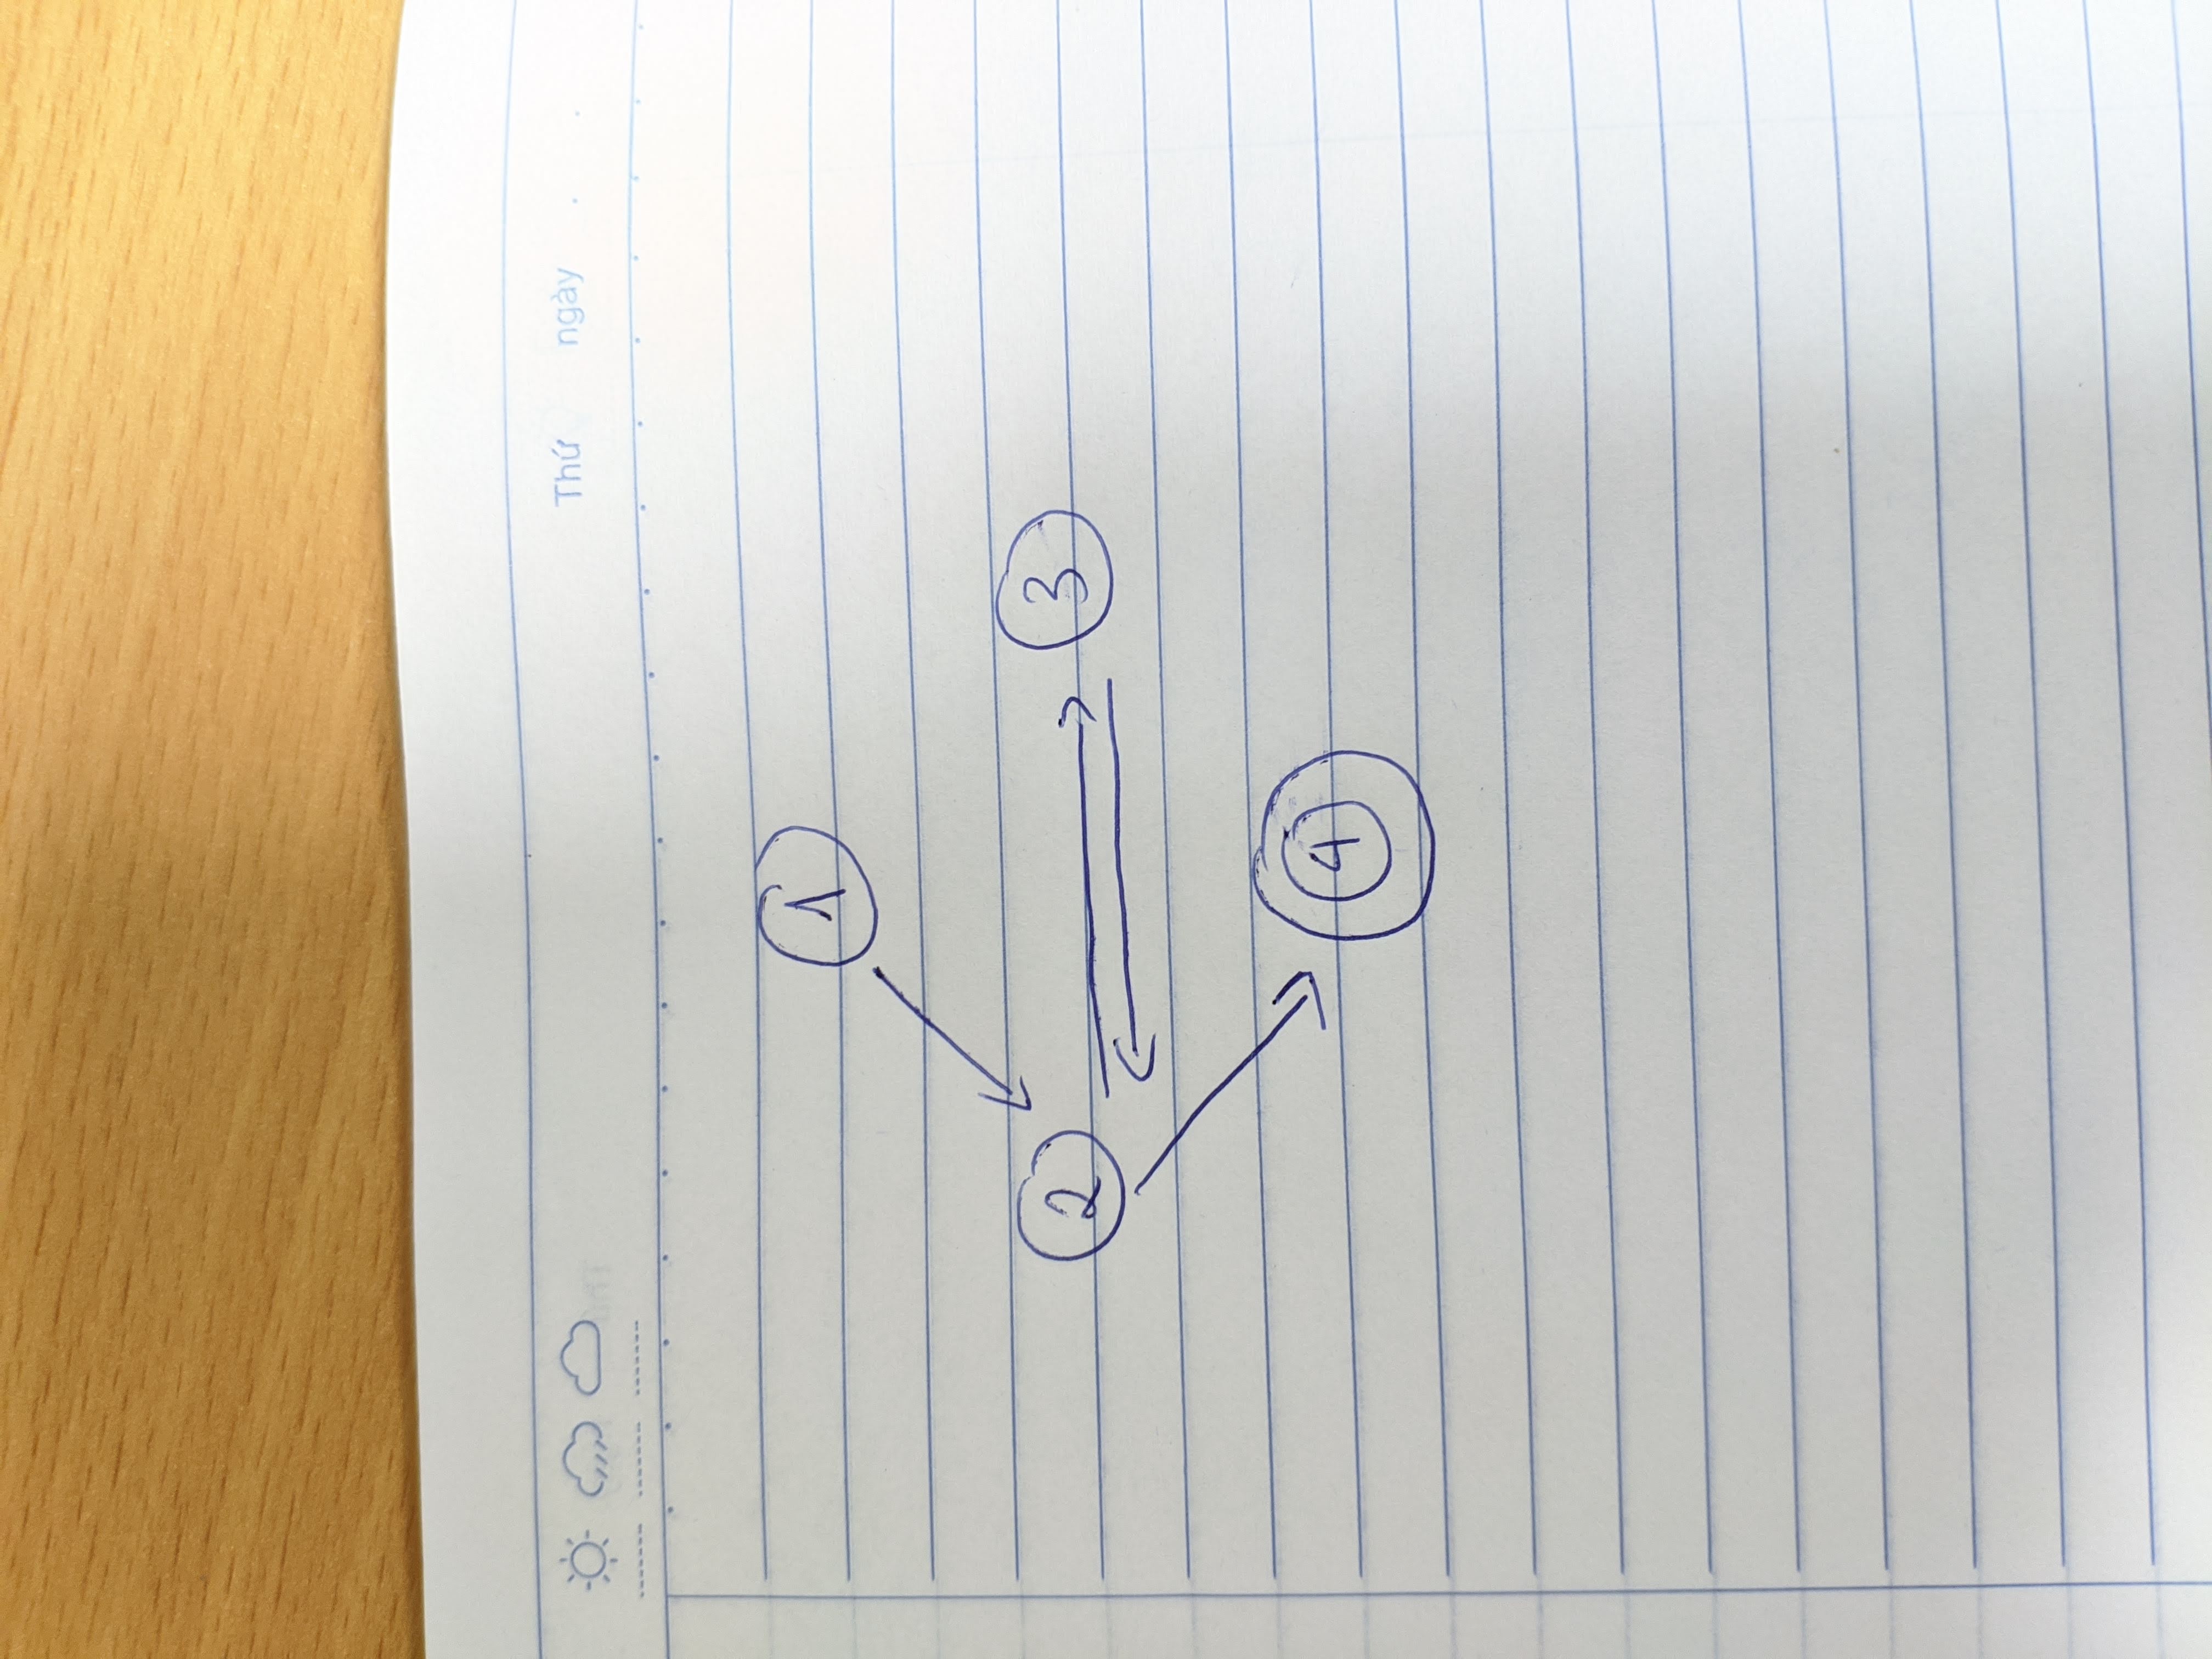 Thứ ngày . .
1
2 3
4